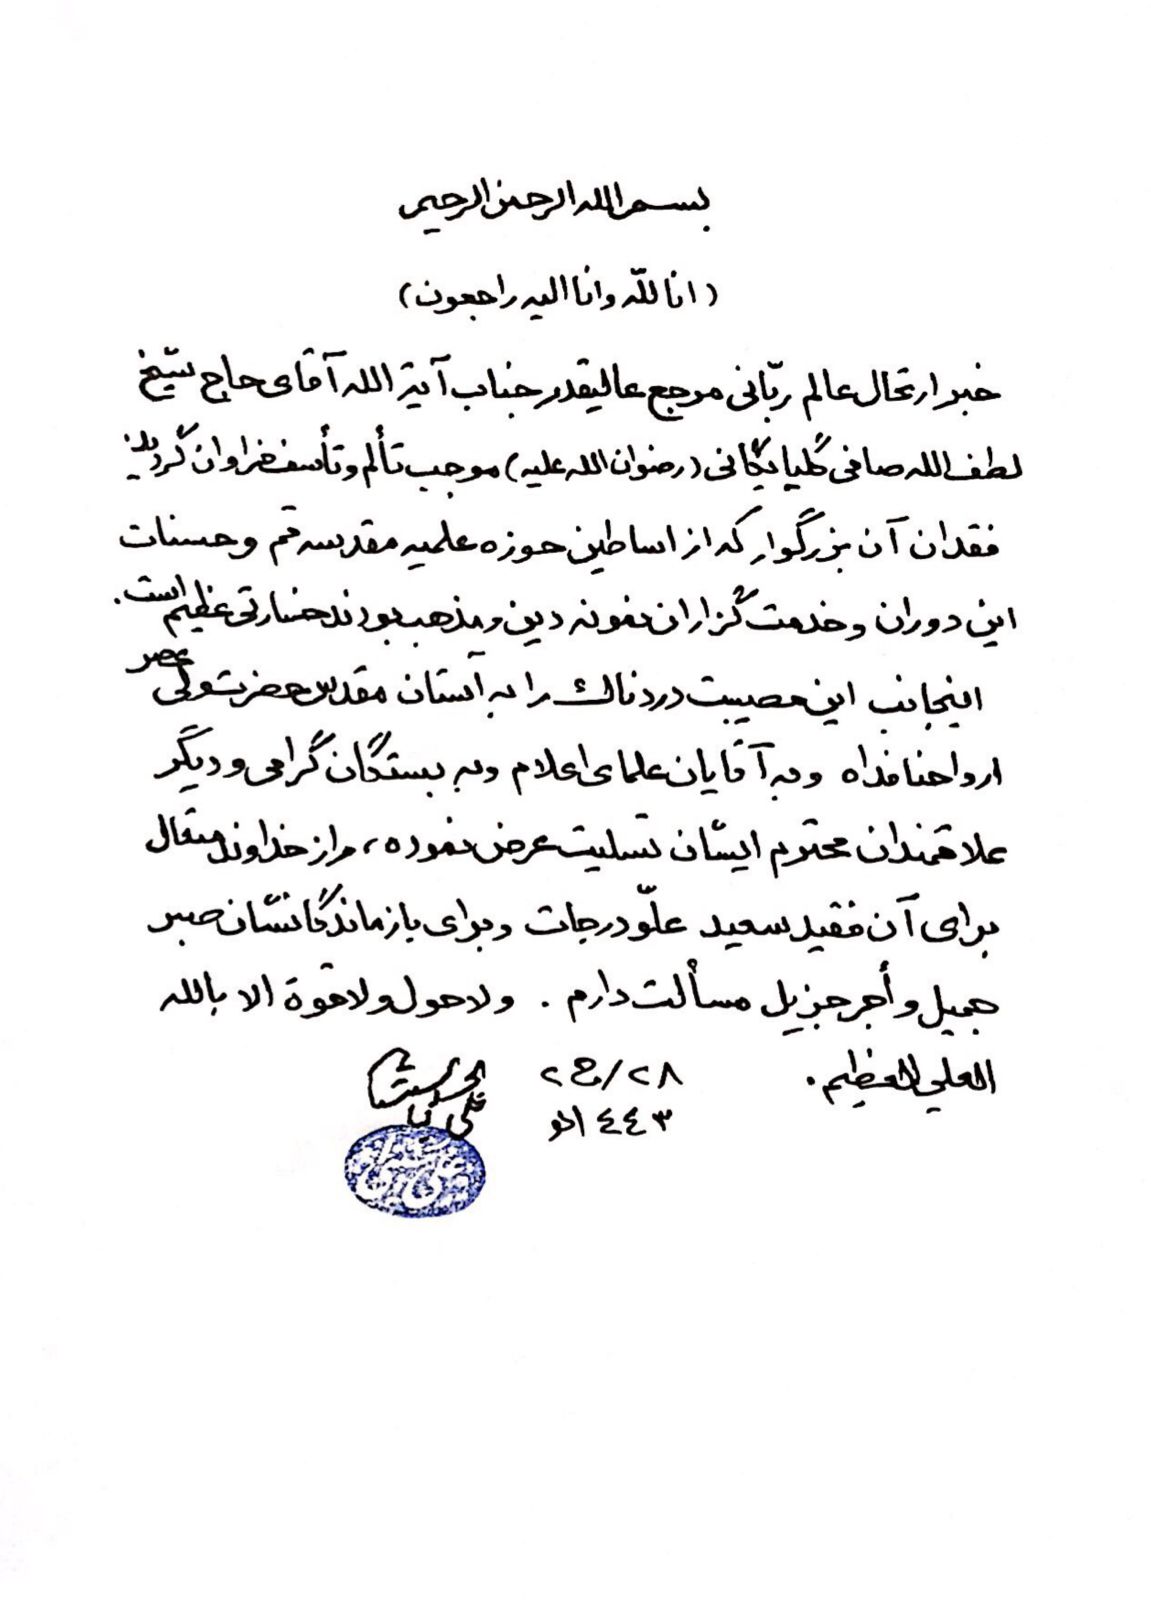 بسم الله الرحمن الرحيم
(انا لله وانا اليه راجعون)
خبر ارتحال عالم ربّانی مرجع عاليقدر جناب آية الله آقای حاج شیخ
لطف الله صافی گلپایگانی (رضوان الله عليه) موجب تألم وتأسف فراوان گردید
فقدان آن بزرگوار که از اساطین حوزه علمیه مقدسه قم و حسنات
این دوران و خدمت گزاران نمونه دین و مذهب بودند خسارتی عظیم است.
اینجانب این مصیبت دردناك را به آستان مقدس حضرت ولی عصر
ارواحنا فداه و به آقایان علمای اعلام وبه بستگان گرامی و دیگر
علاقمندان محترم ایشان تسلیت عرض نموده، و از خداوند متعال
برای آن فقید سعید علوّ درجات وبرای بازماندگانشان صبر
جمیل و أجر جزیل مسألت دارم . ولا حول ولا قوة الا بالله
العلي العظيم .
٢٨/ج٢
١٤٤٣هـ
علي الحسيني السيستاني